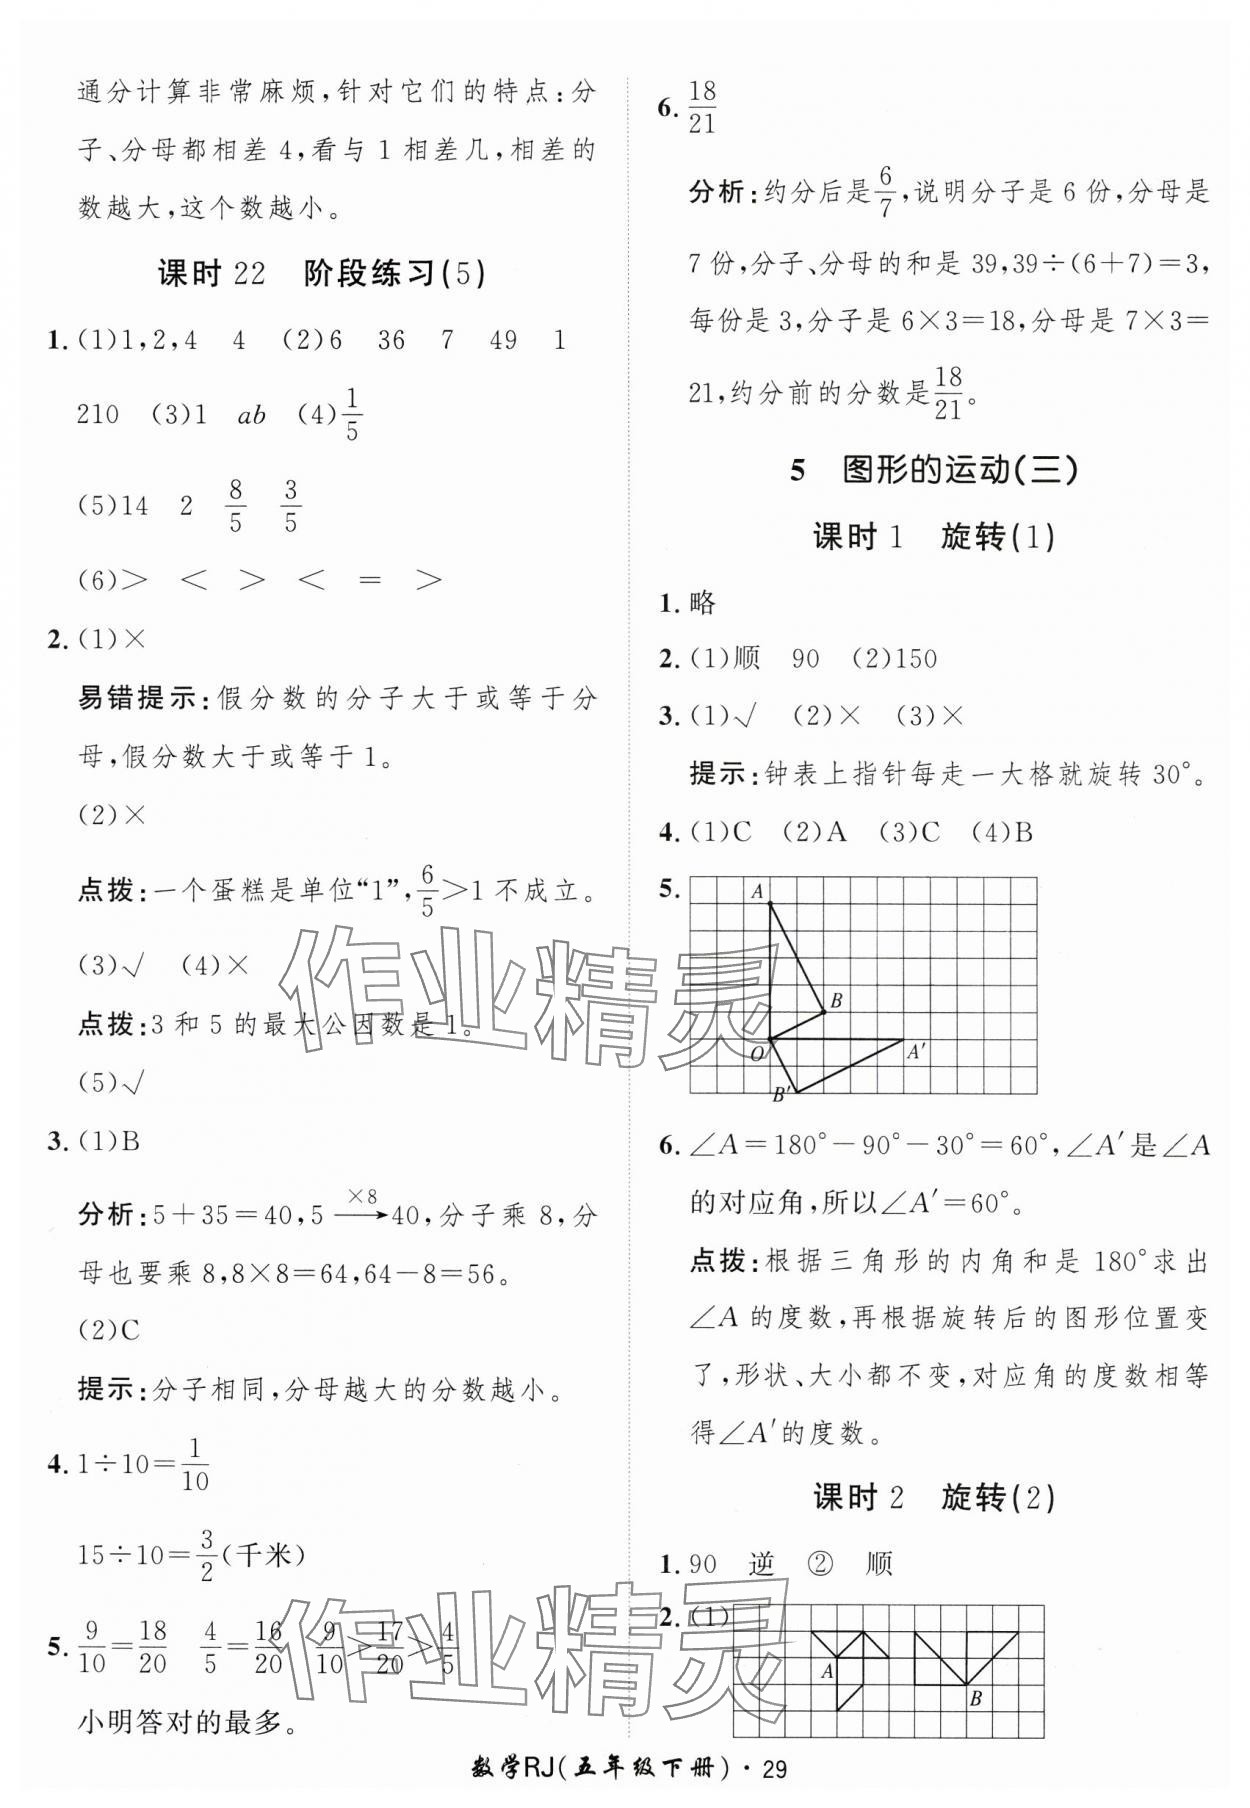 通分计算非常麻烦,针对它们的特点:分
子、分母都相差 4,看与 1 相差几,相差的
数越大,这个数越小。
课时 22 阶段练习(5)
1. (1)1,2,4 4 (2)6 36 7 49 1
210 (3)1 ab (4)1/5
(5)14 2 8/5 3/5
(6)> < > < = >
2. (1)×
易错提示:假分数的分子大于或等于分
母,假分数大于或等于 1。
(2)×
点拨:一个蛋糕是单位“1”,6/5>1 不成立。
(3)√ (4)×
点拨:3 和 5 的最大公因数是 1。
(5)√
3. (1)B
分析:5+35=40,5 ×8→ 40,分子乘 8,分
母也要乘 8,8×8=64,64-8=56。
(2)C
提示:分子相同,分母越大的分数越小。
4. 1÷10=1/10
15÷10=3/2(千米)
5. 9/10=18/20 4/5=16/20 9/10>17/20>4/5
小明答对的最多。
6. 18/21
分析:约分后是6/7,说明分子是 6 份,分母是
7 份,分子、分母的和是 39,39÷(6+7)=3,
每份是 3,分子是 6×3=18,分母是 7×3=
21,约分前的分数是18/21。
5 图形的运动(三)
课时 1 旋转(1)
1. 略
2. (1)顺 90 (2)150
3. (1)√ (2)× (3)×
提示:钟表上指针每走一大格就旋转 30°。
4. (1)C (2)A (3)C (4)B
5.
A
B
O
A′
B′
6. ∠A=180°-90°-30°=60°,∠A′是∠A
的对应角,所以∠A′=60°。
点拨:根据三角形的内角和是 180°求出
∠A 的度数,再根据旋转后的图形位置变
了,形状、大小都不变,对应角的度数相等
得∠A′的度数。
课时 2 旋转(2)
1. 90 逆 ② 顺
2. (1)
A
B
数学RJ(五年级下册)·29
作业精灵
作业精灵